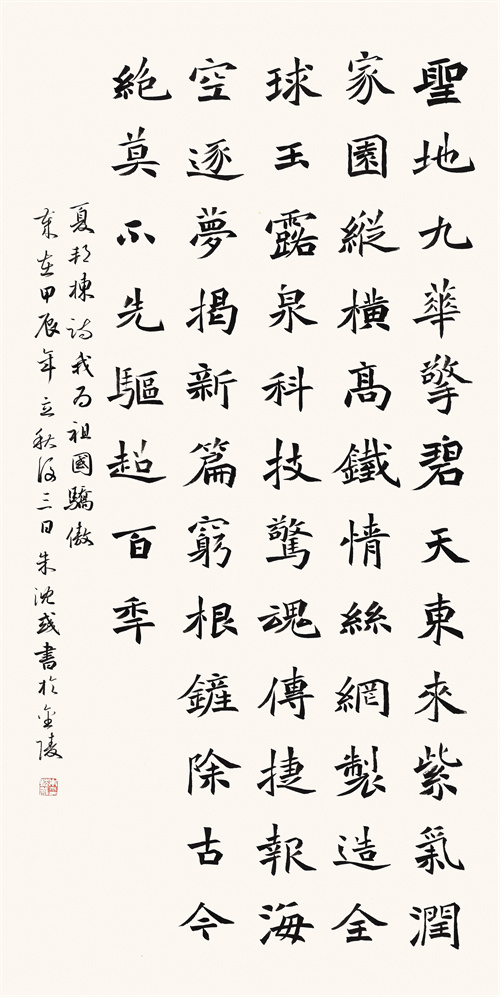 聖地九華擎碧天東來紫氣潤
家園縱橫髙鐵情絲網製造全
球王露泉科技驚魂傳捷報海
空逐夢揭新篇窮根鏟除古今
絕莫不先驅超百年
夏邦棟詩我為祖國驕傲
歲在甲辰年立秋後三日朱沈書於金陵